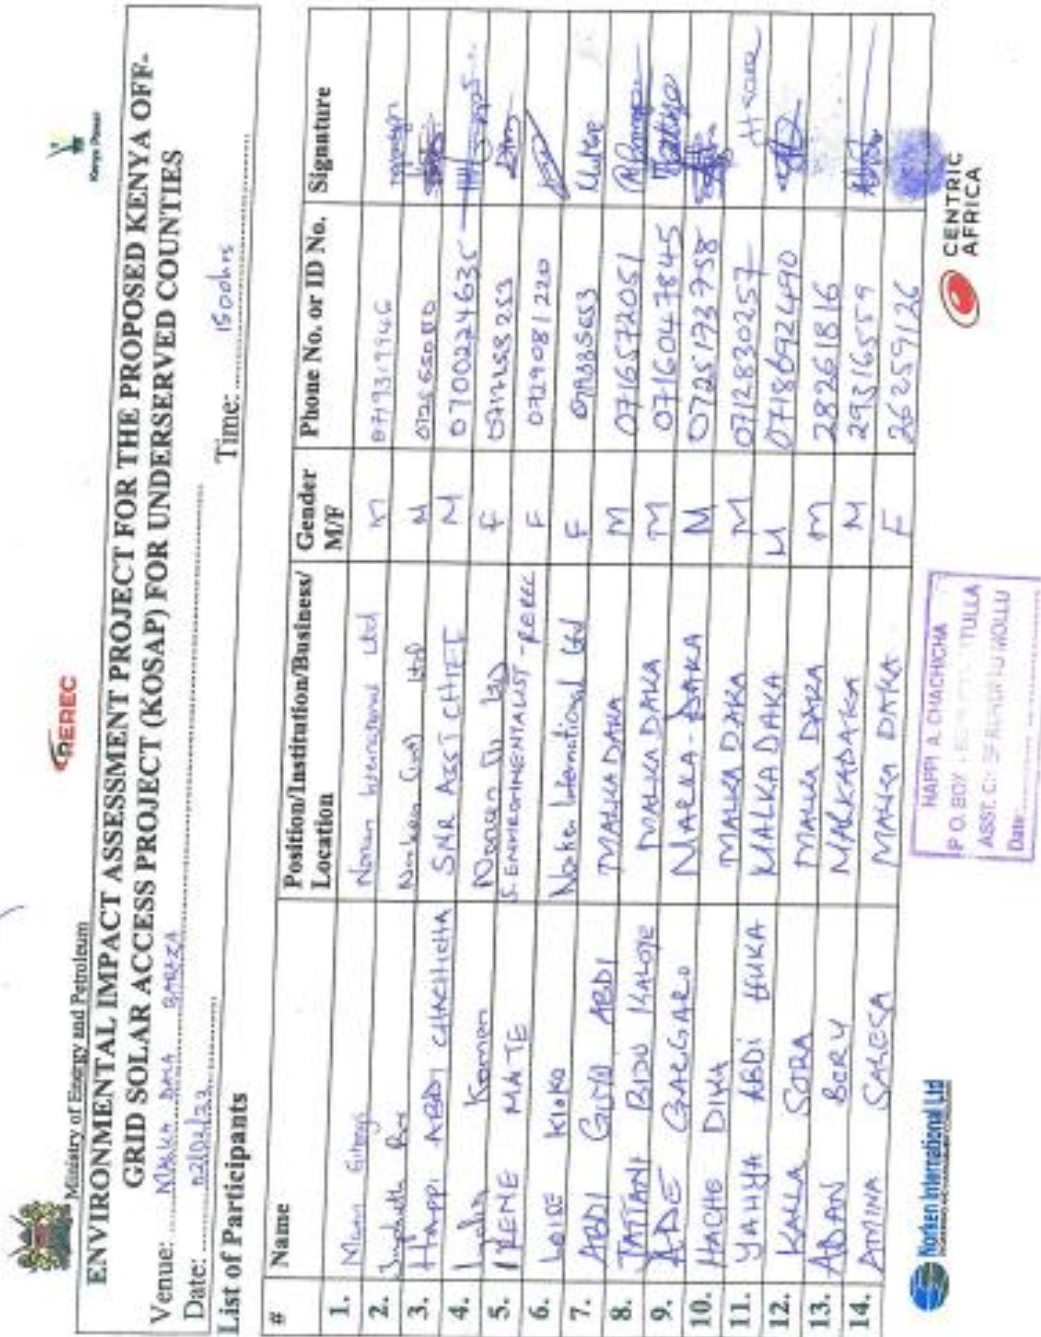 Ministry of Energy and Petroleum
REREC
Kenya Power
ENVIRONMENTAL IMPACT ASSESSMENT PROJECT FOR THE PROPOSED KENYA OFF-
GRID SOLAR ACCESS PROJECT (KOSAP) FOR UNDERSERVED COUNTIES
Venue: MALKA DAKA BARAZA
Date: Time: 1500hrs
List of Participants
# Name Position/Institution/Business/ Location Gender M/F Phone No. or ID No. Signature
1. Norken International Ltd M
2. Norken Ltd M
3. HAPPI ABDI CHACHICHA SNR ASST CHIEF M 0700224635
4. Lydia Komen Norken Ltd F
5. IRENE MAITE S. ENVIRONMENTALIST - REREC F 0729081220
6. LOISE KIOKO Norken International Ltd F
7. ABDI GUYO ABDI MALKA DAKA M 0716572051
8. TATTANI BIDU KALOTE MALKA DAKA M 0716047845
9. ADE GALGARO MALKA - DAKA M
10. HACHE DIKA MALKA DAKA M 0712830257
11. YAHYA ABDI MALKA DAKA M 0718692490
12. KALLA SORA MALKA DAKA M 28261816
13. ADAN BORU MALKADAKA M 29316559
14. AMINA SALESA MALKA DAKA F 26259126
HAPPI A. CHACHICHA
P O. BOX TULLA
ASST. MOLLU
Date:
Norken International Ltd
CENTRIC
AFRICA